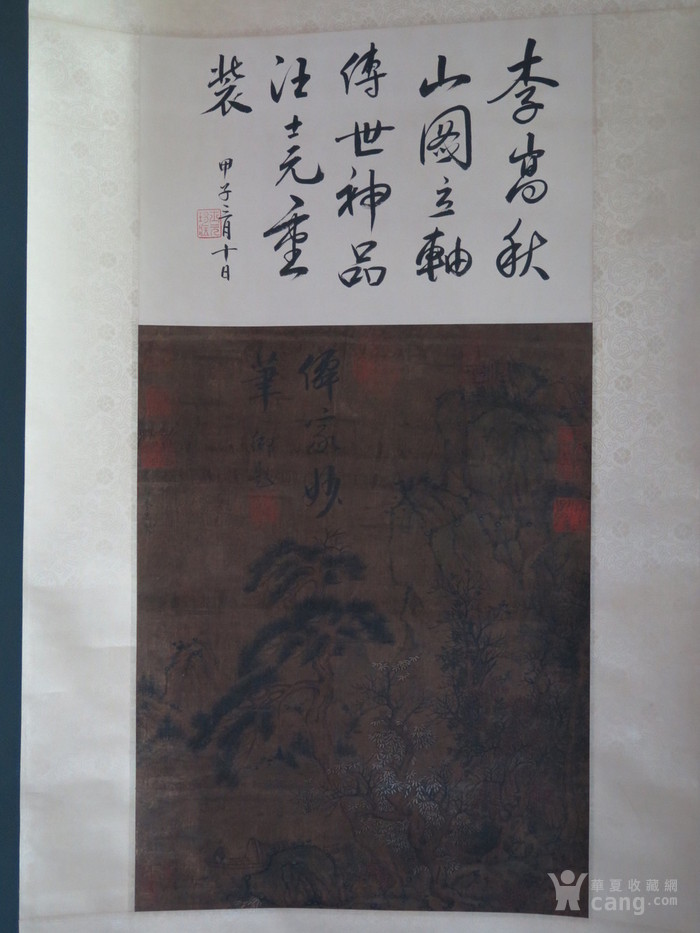 李嵩秋
山圖立軸
傳世神品
汪士元重
裝
甲子二月十日
僊家妙
筆 御題
華夏收藏網
cang.com